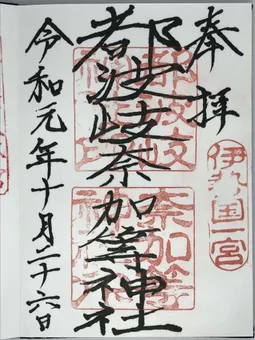 奉拝
伊勢国一宮
都波岐奈加等神社
令和元年十月二十六日